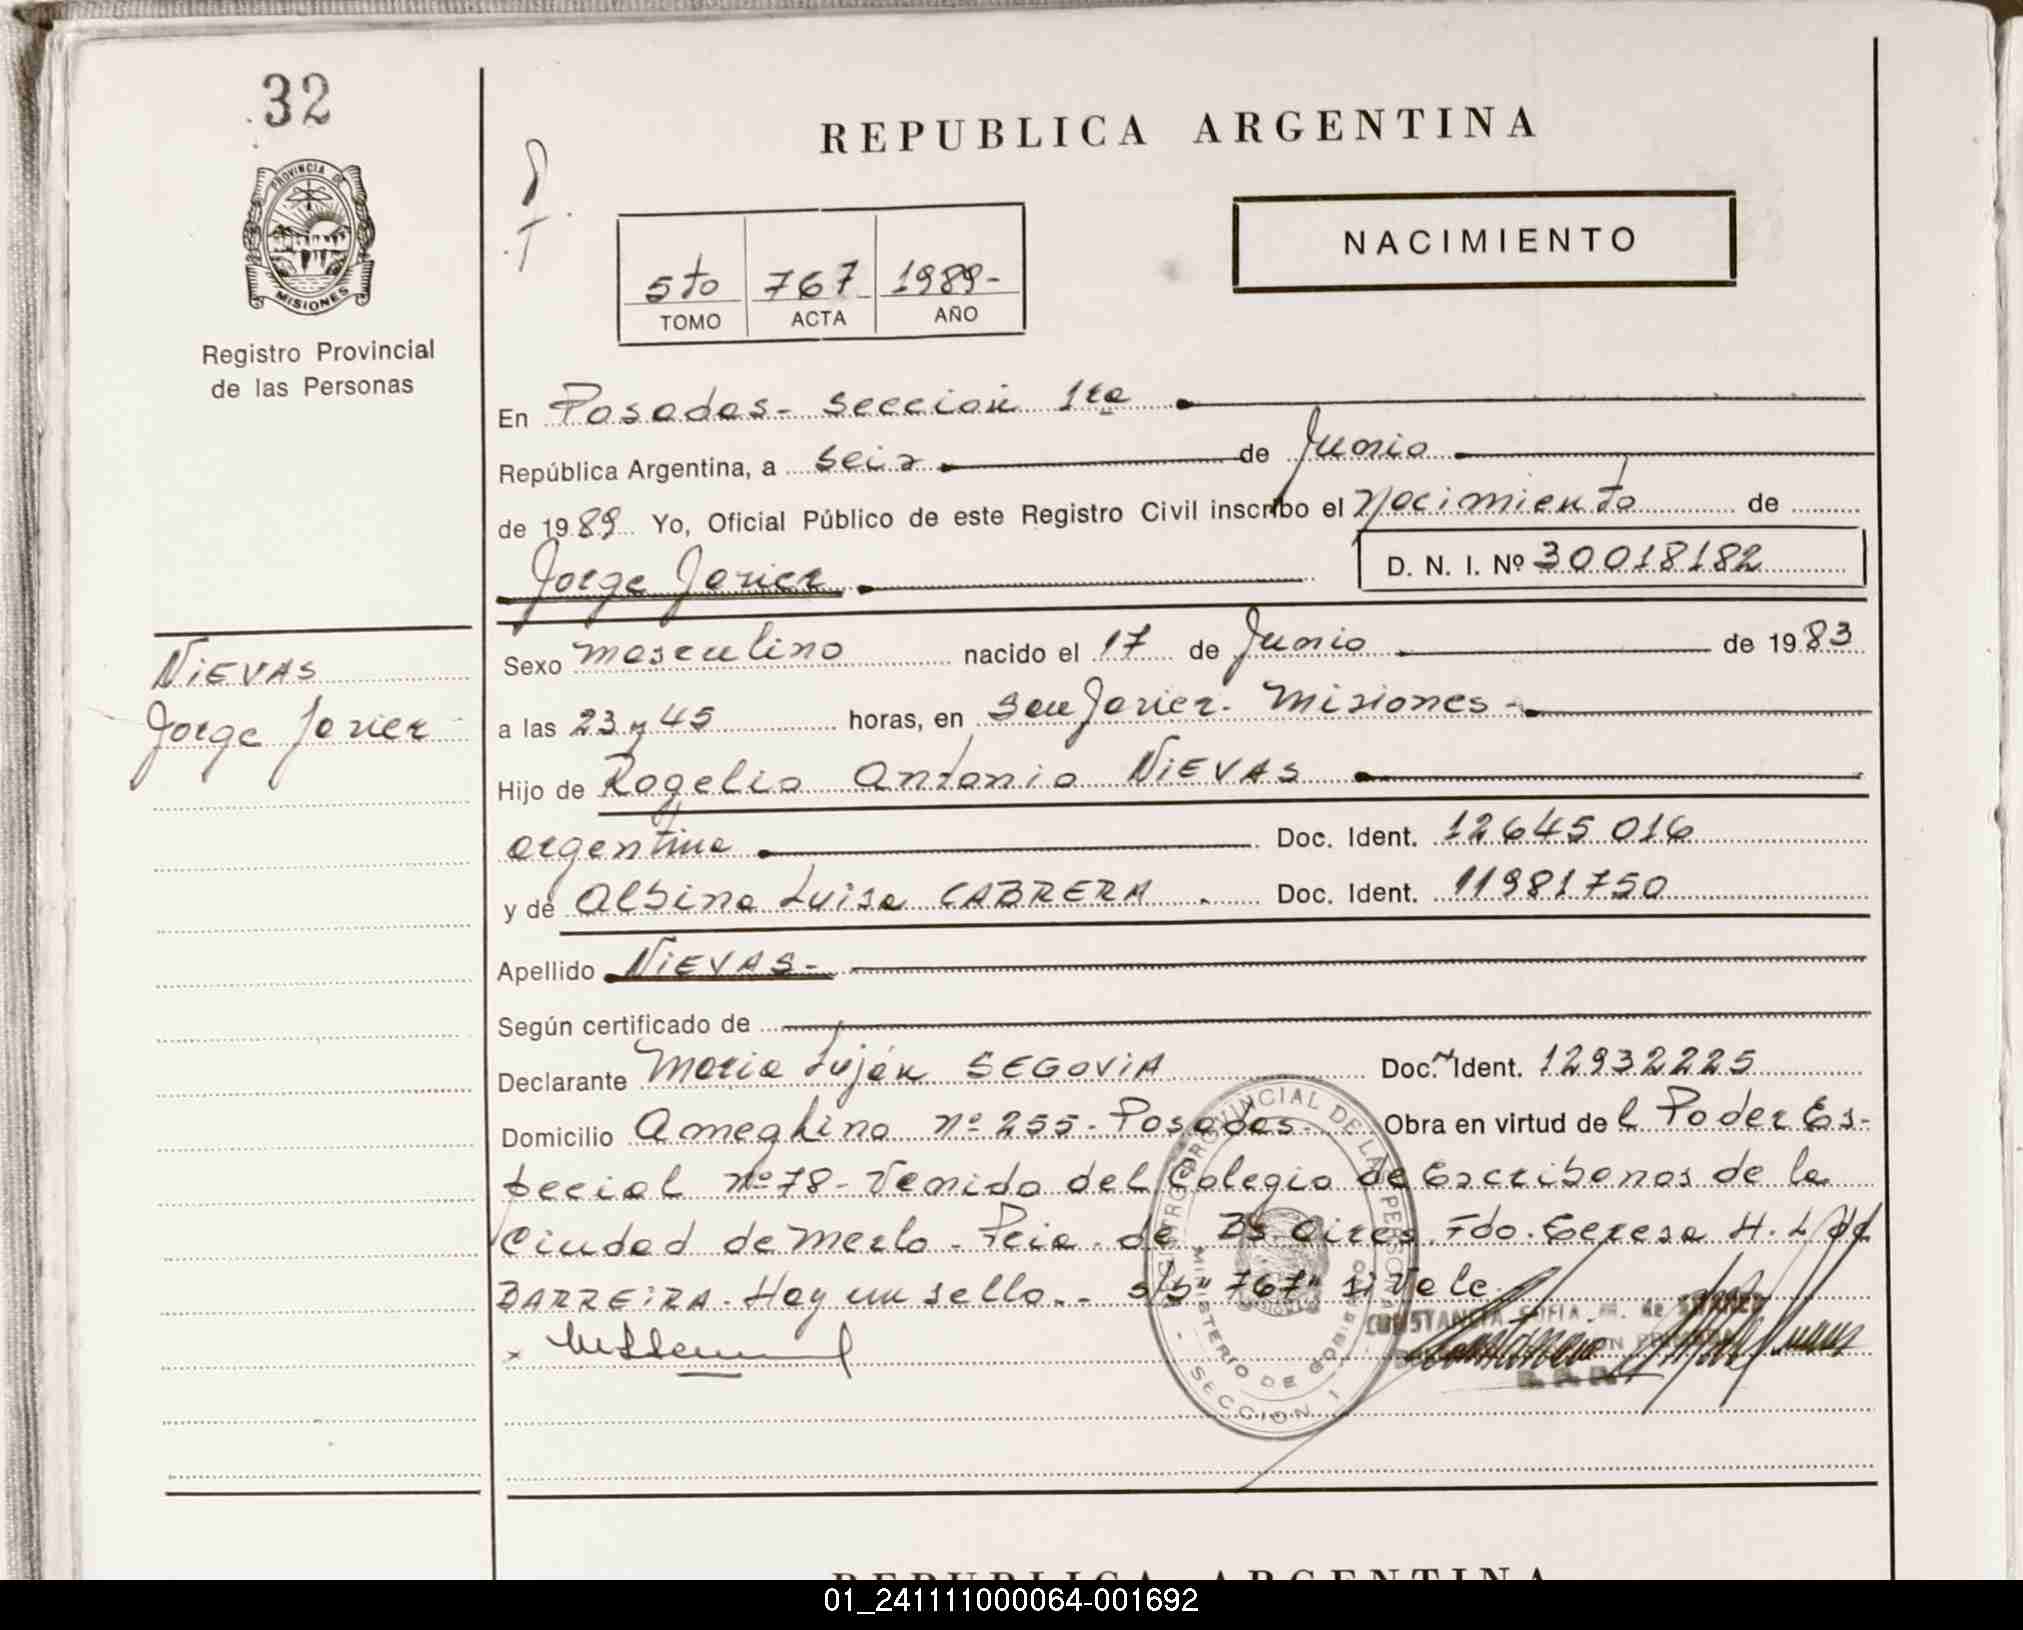 32
REPUBLICA ARGENTINA
PROVINCIA DE
MISIONES
Registro Provincial
de las Personas
NACIMIENTO
5to 767 1989-
TOMO ACTA AÑO
En Posadas - Sección 1ra
República Argentina, a seis de Junio
de 1989 Yo, Oficial Público de este Registro Civil inscribo el Nacimiento de
Jorge Javier D. N. I. Nº 30018182
Sexo masculino nacido el 17 de Junio de 1983
NIEVAS
Jorge Javier
a las 23 y 45 horas, en San Javier - Misiones -
Hijo de Rogelio Antonio NIEVAS
argentina Doc. Ident. 12645016
y de Albina Luisa CABRERA Doc. Ident. 11981750
Apellido NIEVAS -
Según certificado de
Declarante Maria Luján SEGOVIA Doc. Ident. 12932225
Domicilio Ameghino nº 255 - Posadas - Obra en virtud del Poder Es-
pecial nº 78 - Venido del Colegio de Escribanos de la
Ciudad de Merlo - Pcia. de Bs Aires. Fdo. Teresa H. L. de
BARREIRA. Hay un sello. - s/b "767" si Vale.
REGISTRO PROVINCIAL DE LAS PERSONAS
MINISTERIO DE GOBIERNO
- SECCION 1
CONSTANCIA SOFIA M. de SUAREZ
REPUBLICA ARGENTINA
01_241111000064-001692